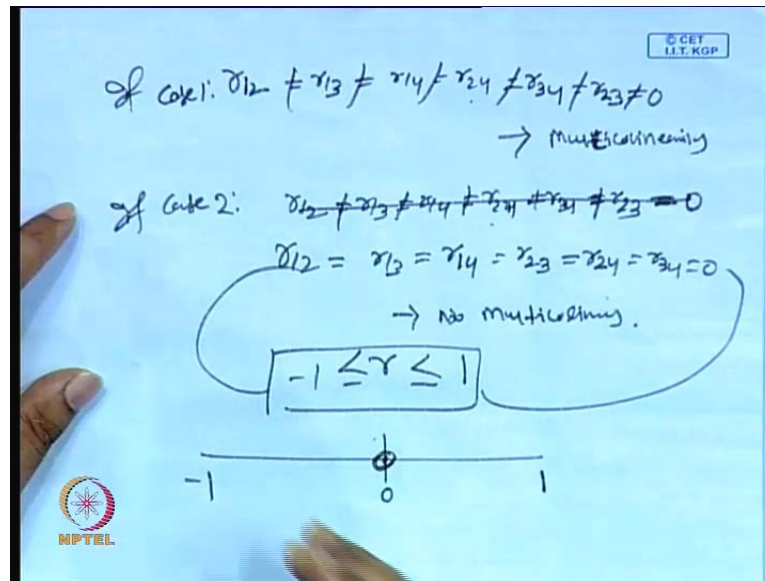 © CET
I.I.T. KGP
If Case 1: r12 ≠ r13 ≠ r14 ≠ r24 ≠ r34 ≠ r23 ≠ 0
→ Multicolinearity
If Case 2: r12 ≠ r13 ≠ r14 ≠ r24 ≠ r34 ≠ r23 = 0
r12 = r13 = r14 = r23 = r24 = r34 = 0
→ No
-1 ≤ r ≤ 1
-1 0 1
NPTEL